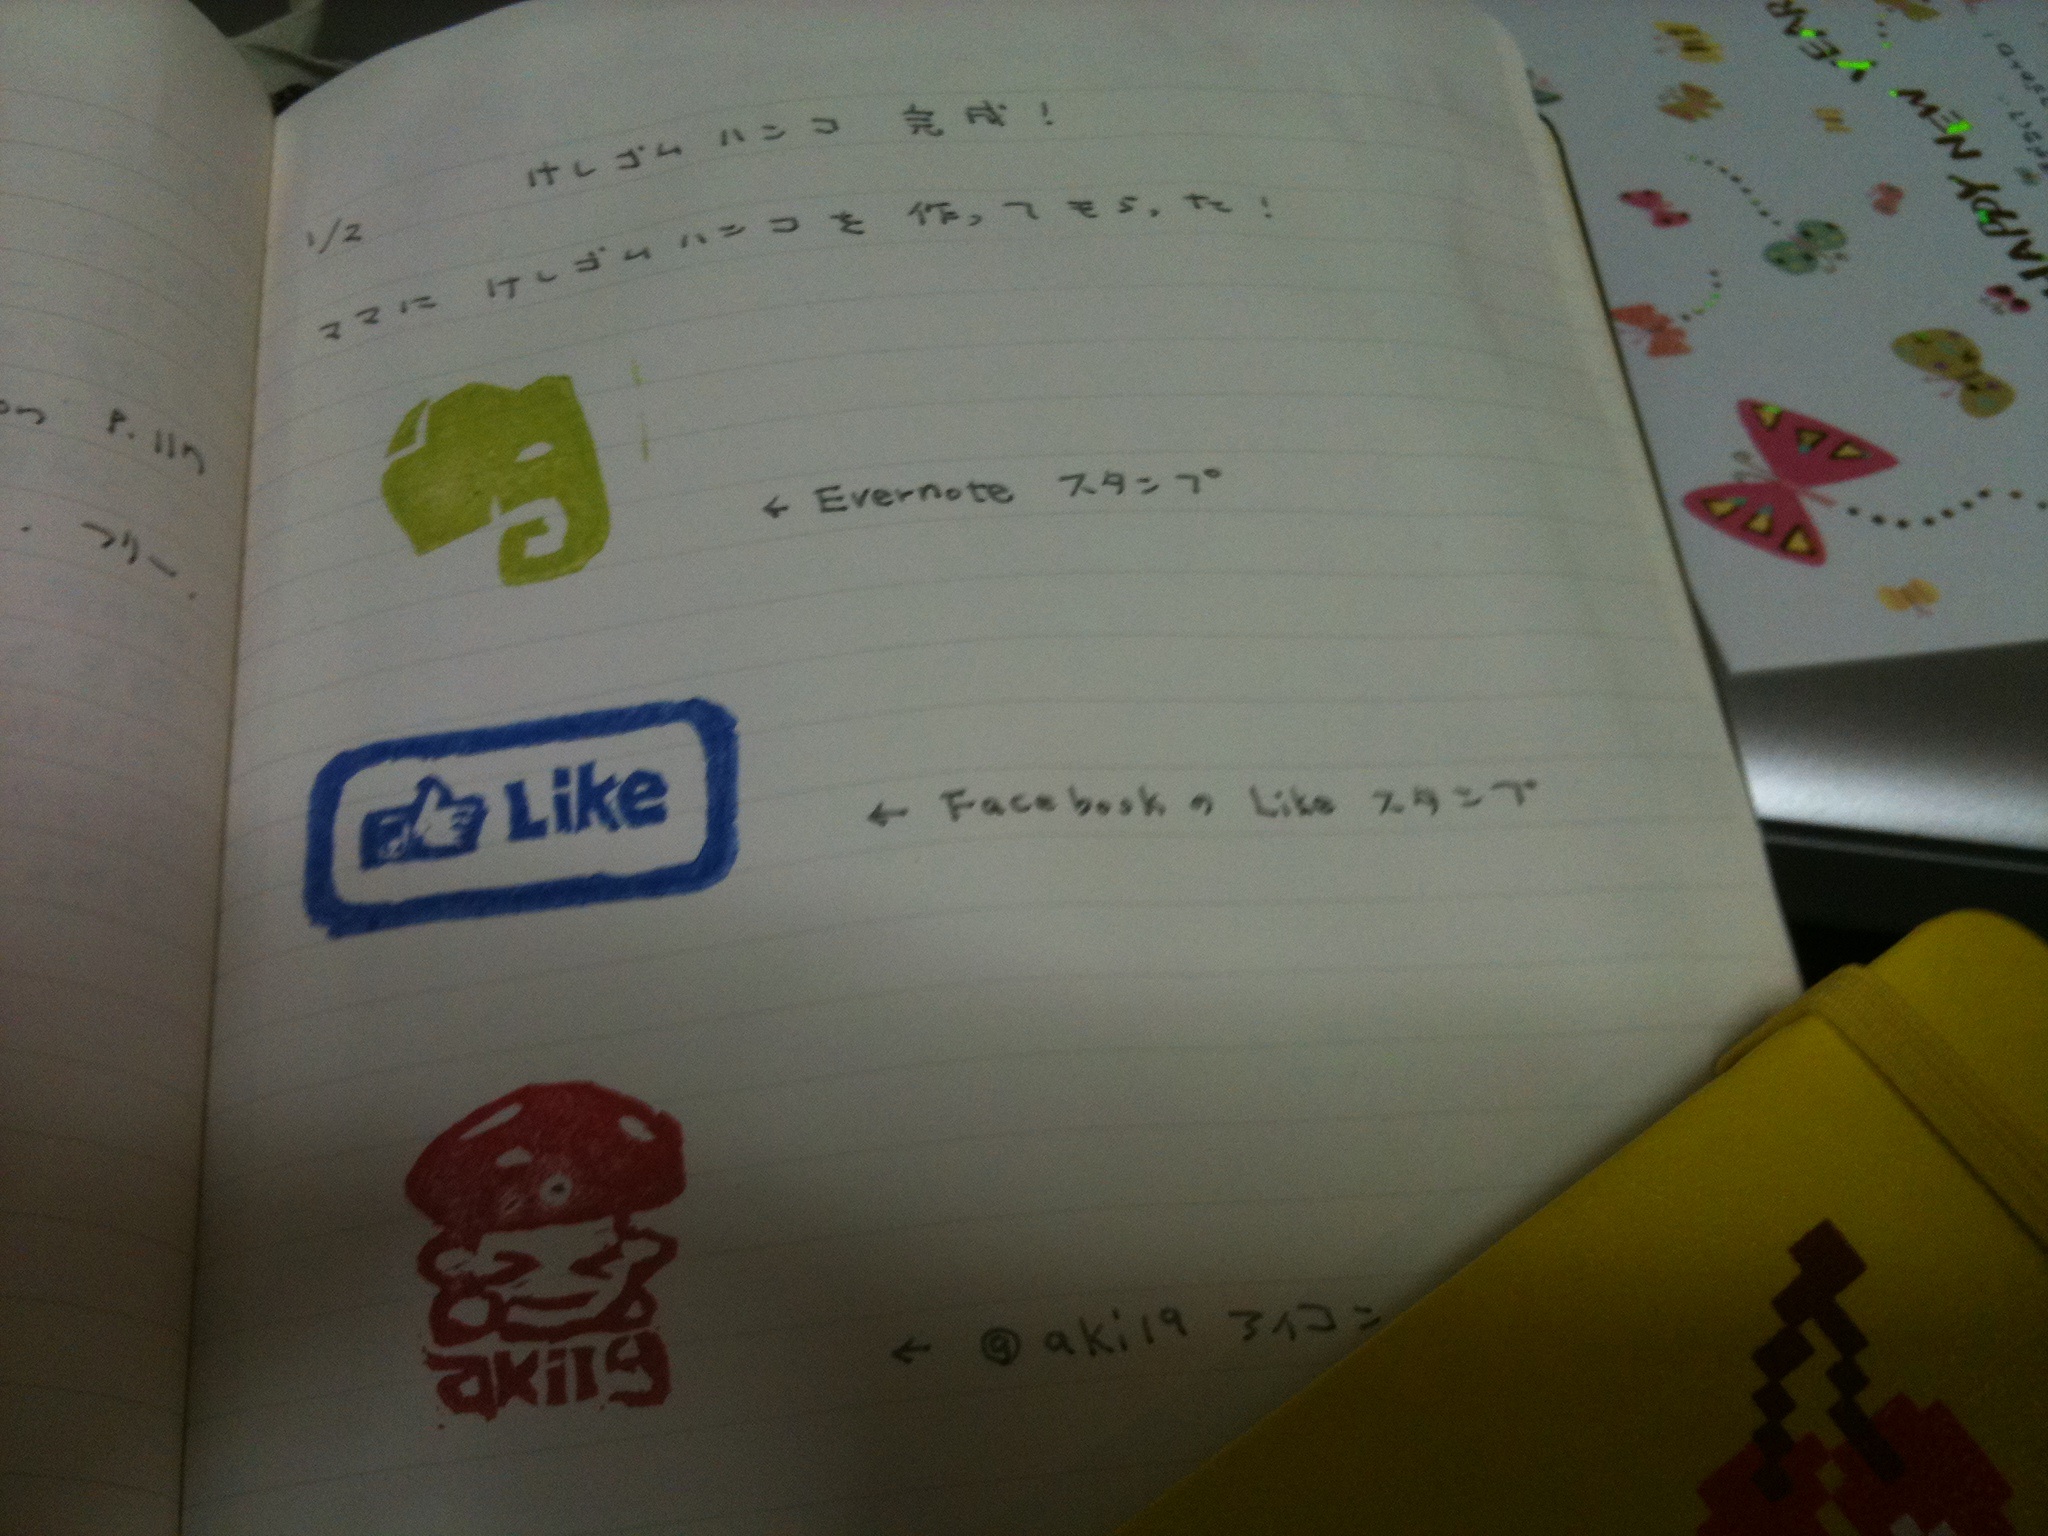 けしゴムハンコ 完成!
1/2
ママに けしゴムハンコを 作ってもらった!
← Evernote スタンプ
Like
← Facebookの Like スタンプ
← @aki19 アイコン
aki19
フリー.
HAPPY NEW YEAR